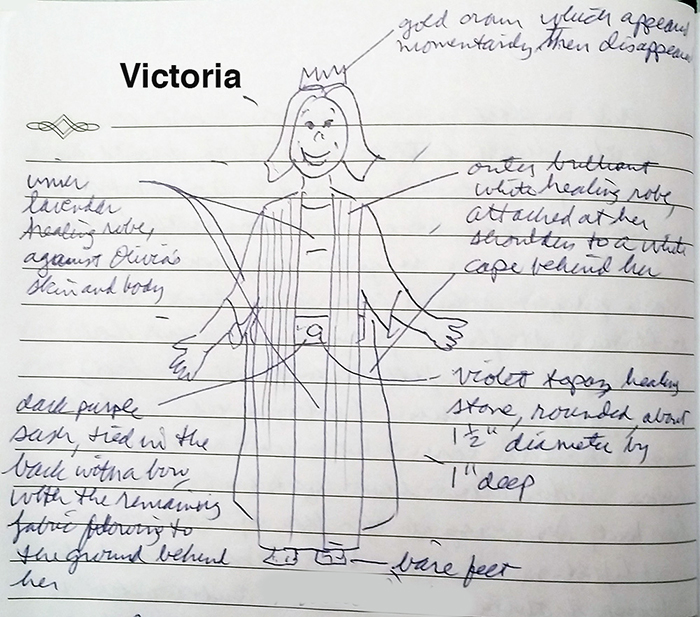 gold crown which appears
momentarily then disappears
Victoria
inner
lavender
healing robe,
against Olivia's
skin and body
outer brilliant
white healing robe,
attached at her
shoulders to a white
cape behind her
violet topaz healing
stone, rounded, about
1 1/2" diameter by
1" deep
dark purple
sash, tied in the
back with a bow,
with the remaining
fabric flowing to
the ground behind
her
bare feet